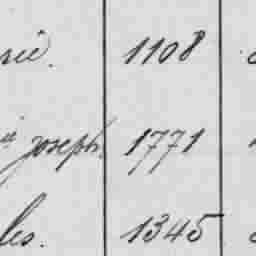 rie. 1108
joseph. 1771
les. 1345